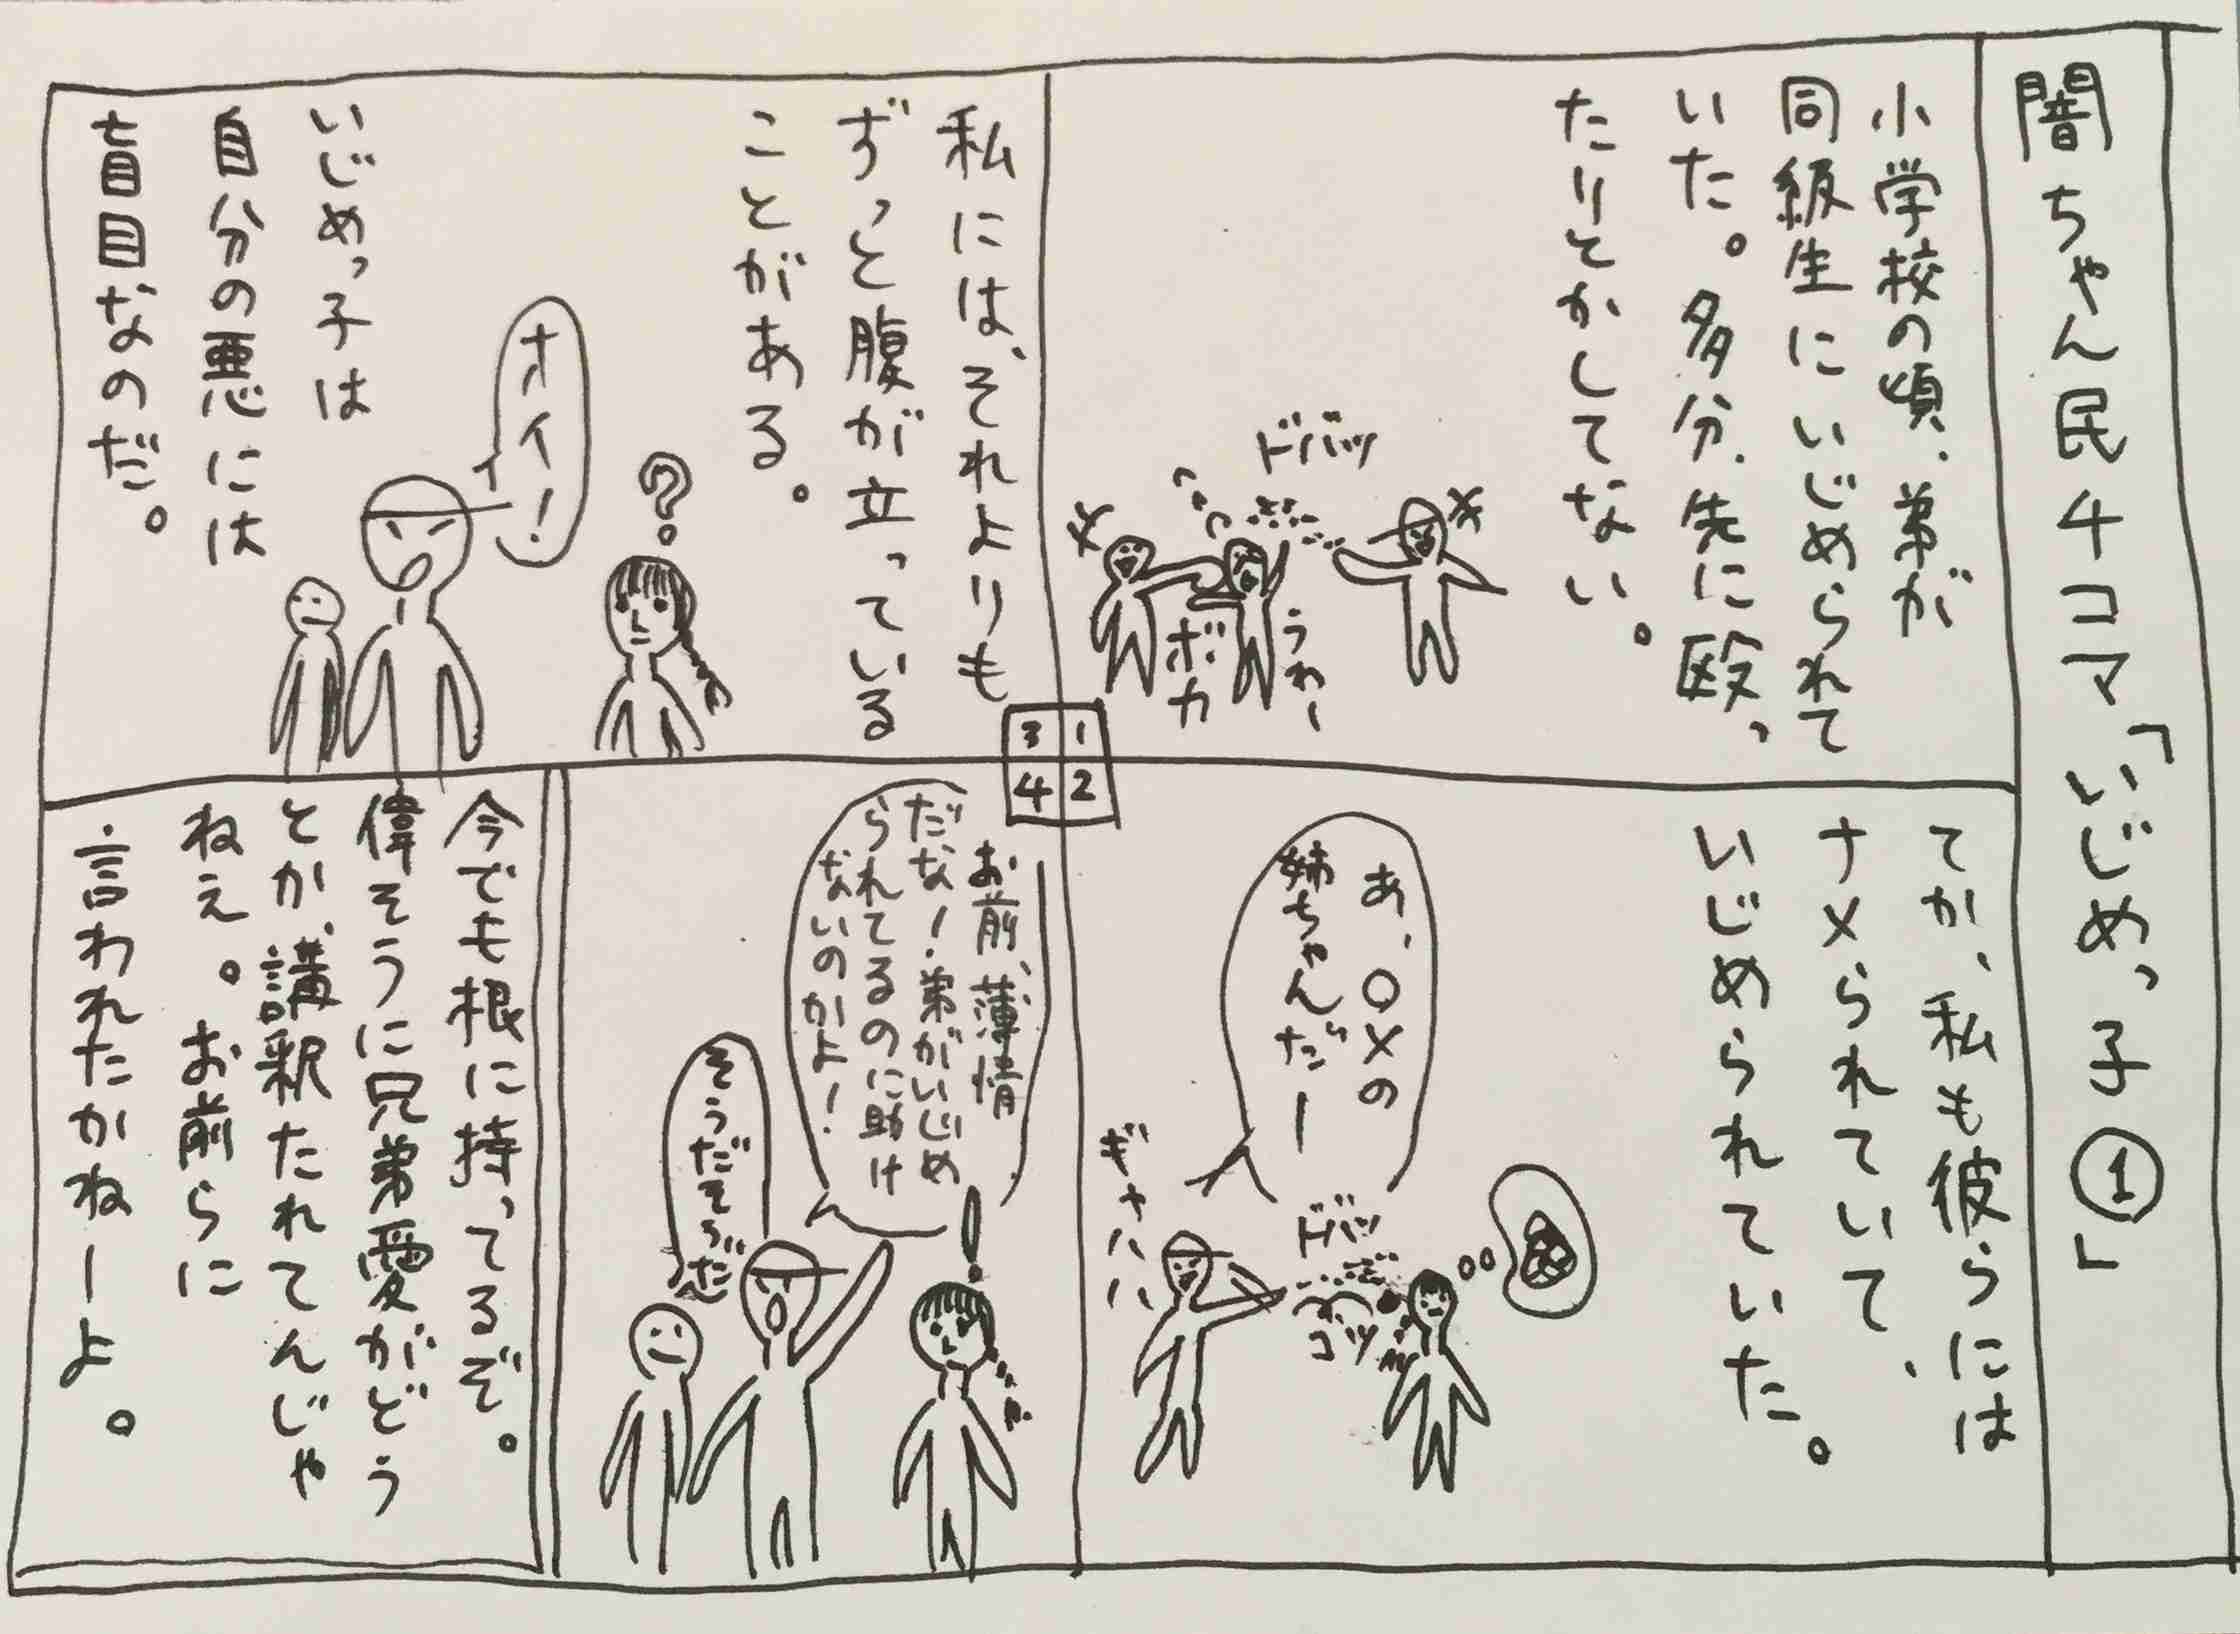 闇ちゃん民4コマ「いじめっ子①」
小学校の頃、弟が
同級生にいじめられて
いた。多分、先に殴っ
たりとかしてない。
ドバッ
ボカ
うわー
1
2
3
4
てか、私も彼らには
ナメられていて、
いじめられていた。
あ、〇×の
姉ちゃんだー
ドバッ
コツ
ギャハハハ
私には、それよりも
ずっと腹が立っている
ことがある。
?
オイ!
いじめっ子は
自分の悪には
盲目なのだ。
お前、薄情
だな!弟がいじめ
られてるのに助け
ないのかよ!
!
そうだそうだ
今でも根に持ってるぞ。
偉そうに兄弟愛がどう
とか、講釈たれてんじゃ
ねえ。お前らに
言われたかねーよ。